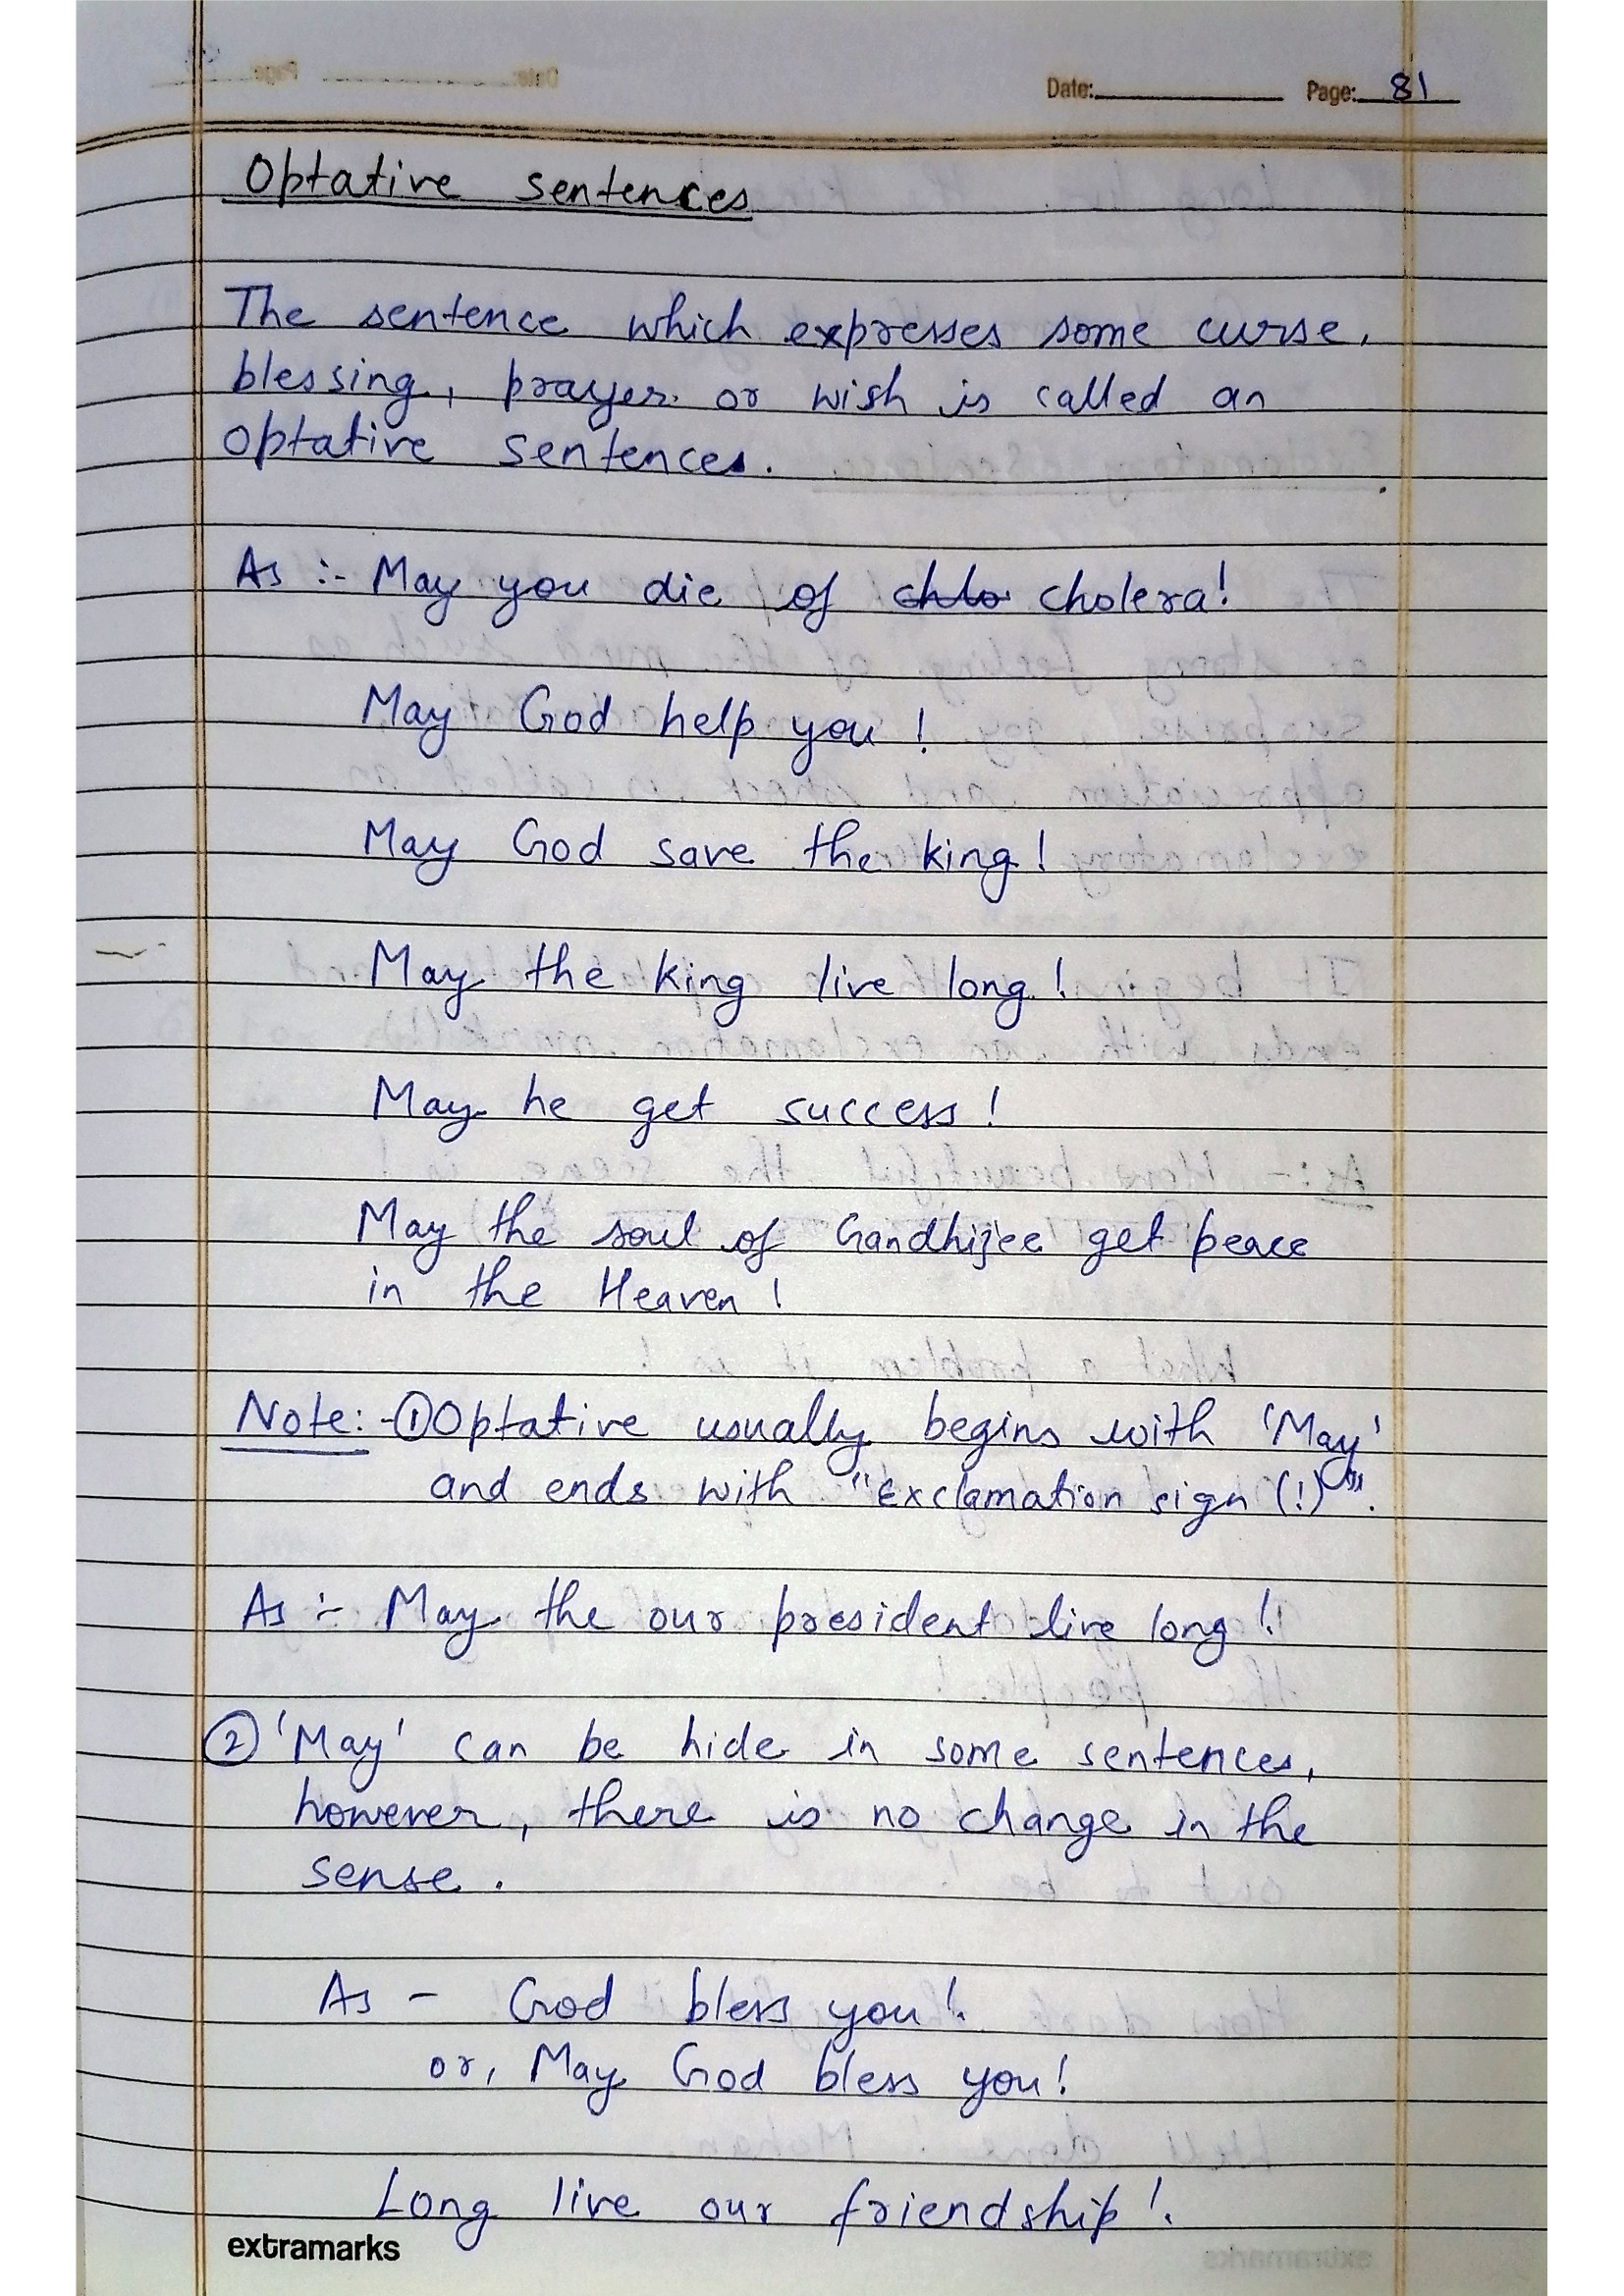 Date: Page: 81
Optative sentences
The sentence which expresses some curse,
blessing, prayer or wish is called an
optative sentences.
As :- May you die of chlo cholera!
May God help you !
May God save the king!
May the king live long!
May he get success!
May the soul of Gandhijee get peace
in the Heaven!
Note:-① Optative usually begins with 'May'
and ends with "exclamation sign (!)".
As :- May the our president live long!
② 'May' can be hide in some sentences,
however, there is no change in the
sense.
As - God bless you!
or, May God bless you!
Long live our friendship!
extramarks